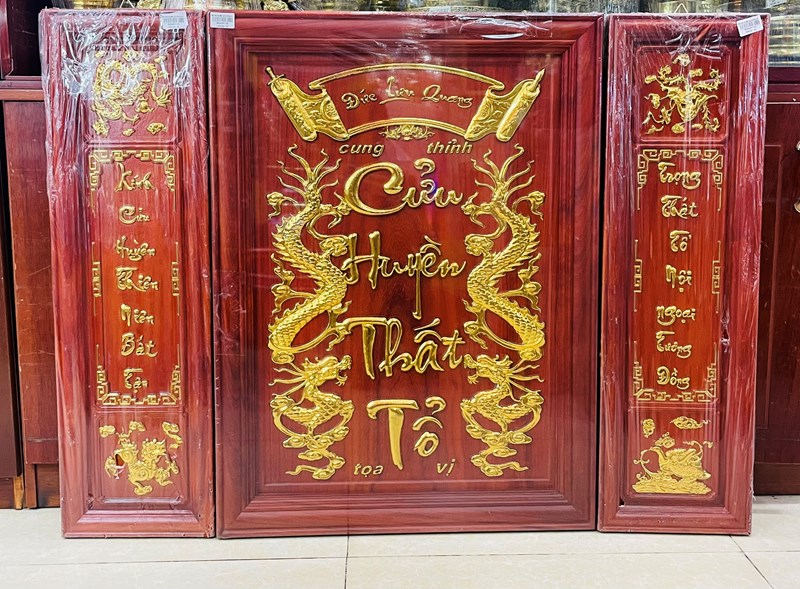 Kính
Cửu
Huyền
Thiên
Niên
Bất
Tận
Đức Lưu Quang
cung thỉnh
Cửu
Huyền
Thất
Tổ
tọa vị
Trọng
Thất
Tổ
Nội
Ngoại
Tương
Đồng